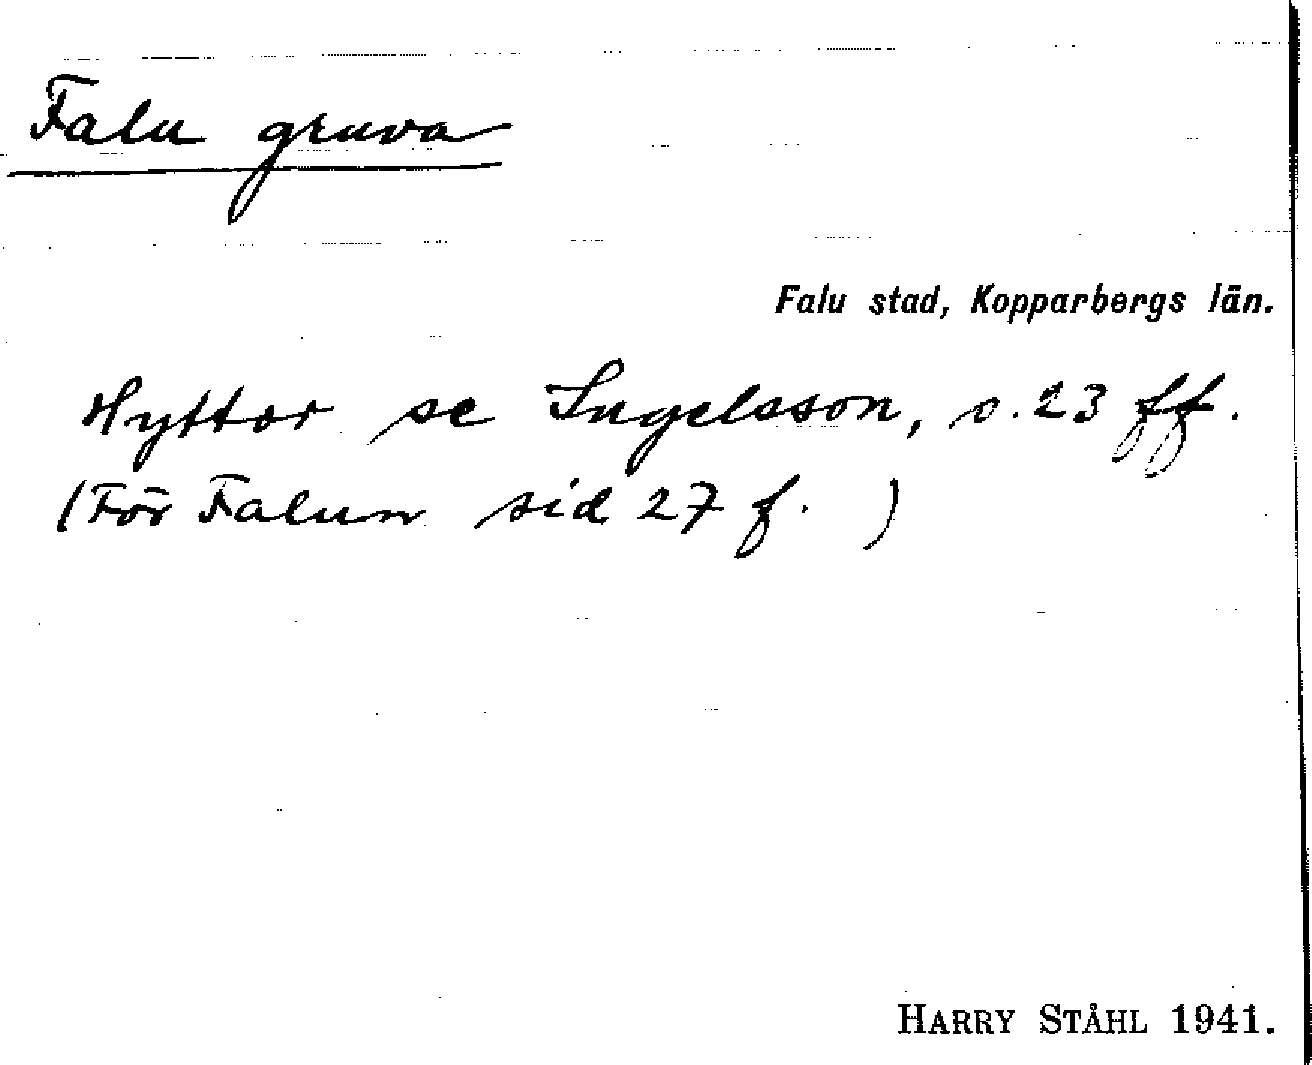 Falu gruva
Falu stad, Kopparbergs län.
Hyttor se Ingelsson, s. 23 ff.
(För Falun sid 27 f. )
HARRY STÅHL 1941.